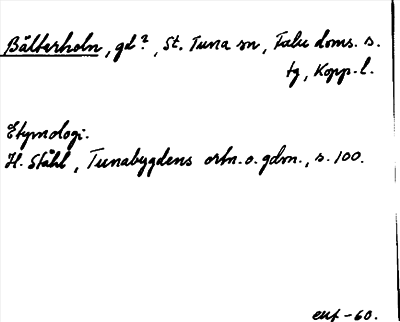 Bälterholn, gd?, St. Tuna sn, Falu doms. s.
tg, Kopp. l.
Etymologi.
H. Ståhl, Tunabygdens ortn. o. gdm., s. 100.
euf -60.